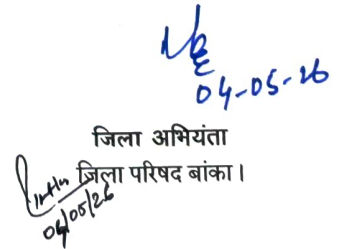 04-05-26
जिला अभियंता
जिला परिषद बांका।
04/05/26